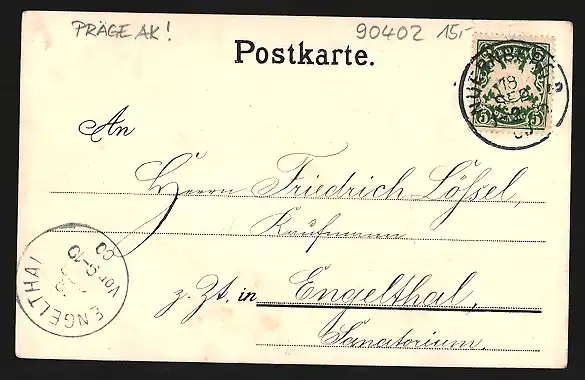 PRÄGE AK!
90402 15,-
Postkarte.
NUERNBERG
18
SEP
5 5
An
Herrn Friedrich Lößel,
Kaufmann
z. Zt. in Engelthal,
Sanatorium.
ENGELTHAL
Vor 9-10
00